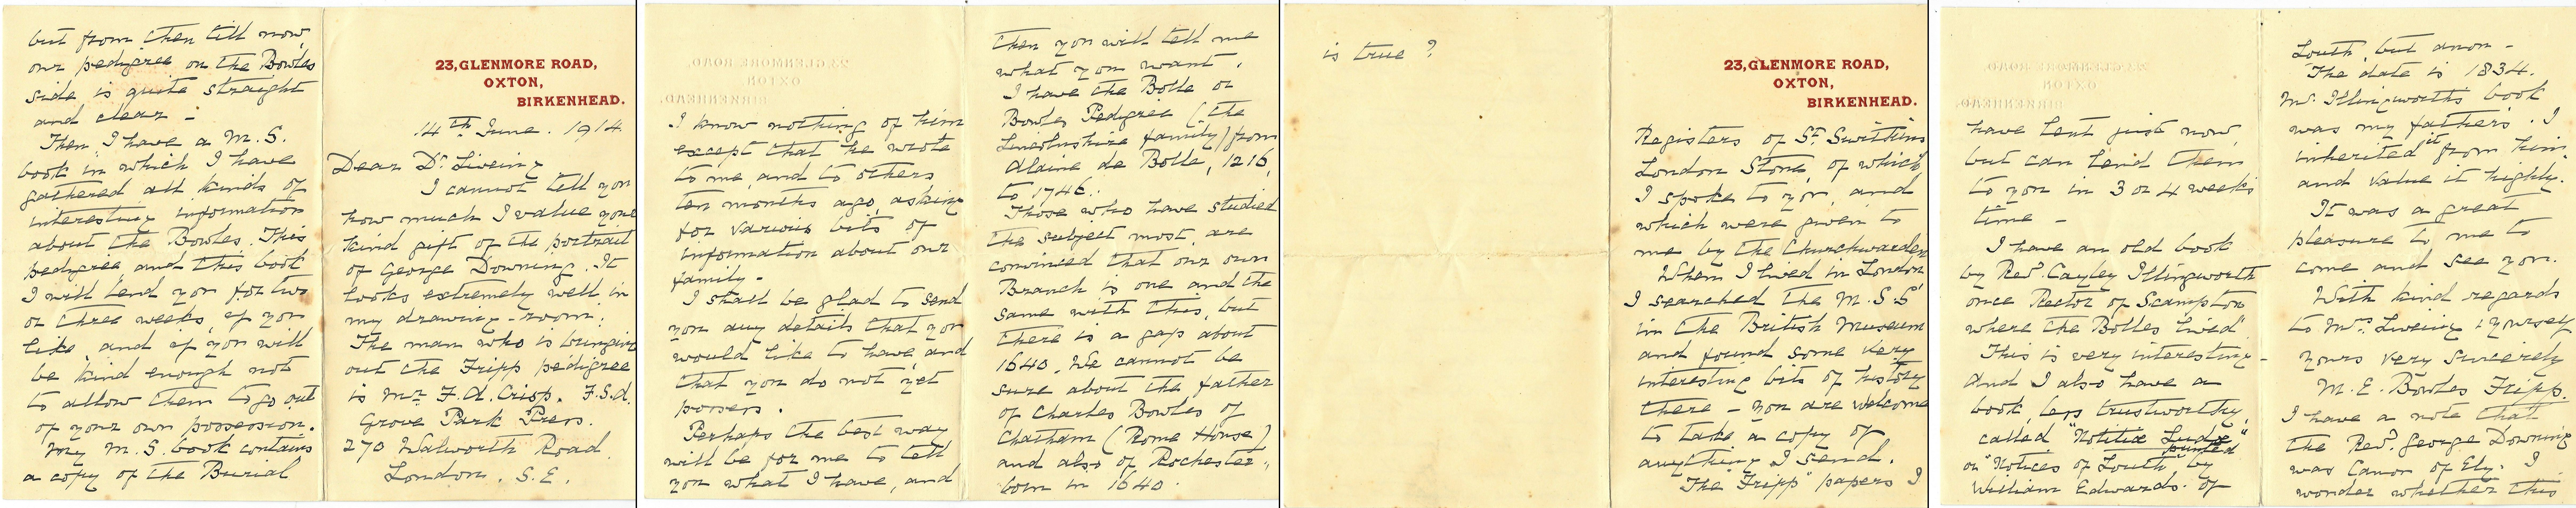 23, GLENMORE ROAD,
OXTON,
BIRKENHEAD.
14th June. 1914.
Dear Dr. Liveing
I cannot tell you
how much I value your
kind gift of the portrait
of George Downing. It
looks extremely well in
my drawing-room.
The man who is bringing
out the Fripp pedigree
is Mr. F. A. Crisp. F.S.A.
Grove Park Press.
270 Walworth Road.
London. S.E.
I know nothing of him
except that he wrote
to me, and to others
ten months ago, asking
for various bits of
information about our
family.
I shall be glad to send
you any details that you
would like to have, and
that you do not yet
possess.
Perhaps the best way
will be for me to tell
you what I have, and
then you will tell me
what you want.
I have the Bolle or
Bowles Pedigree (the
Lincolnshire family) from
Alaine de Bolle, 1216,
to 1746.
Those who have studied
the subject most, are
convinced that our own
Branch is one and the
same with this, but
there is a gap about
1640. We cannot be
sure about the father
of Charles Bowles of
Chatham (Rome House)
and also of Rochester,
born in 1640.
but from then till now
our pedigree on the Bowles
side is quite straight
and clear -
Then I have a M.S.
book in which I have
gathered all kinds of
interesting information
about the Bowles. This
pedigree, and this book
I will lend you for two
or three weeks, if you
like, and if you will
be kind enough not
to allow them to go out
of your own possession.
My M.S. book contains
a copy of the Burial
23, GLENMORE ROAD,
OXTON,
BIRKENHEAD.
Registers of St. Swithins
London Stone, of which
I spoke to you, and
which were given to
me by the Churchwarden
When I lived in London
I searched the M.S.S'
in the British Museum
and found some very
interesting bits of history
there - you are welcome
to take a copy of
anything I send.
The "Fripp" papers I
have lent just now,
but can lend them
to you in 3 or 4 weeks
time -
I have an old book
by Revd. Cayley Illingworth
once Rector of Scampton
where the Bolles lived"
This is very interesting -
And I also have a
book, less trustworthy,
called "Notitiæ Ludæ"
or "Notices of Louth" printed by
William Edwards. of
Louth, but anon -
The date is 1834.
Mr. Illingworths book
was my fathers. I
inherited it from him
and value it highly.
It was a great
pleasure to me to
come and see you.
With kind regards
to Mrs. Liveing & yourself
yours very sincerely
M. E. Bowles Fripp.
I have a note that
the Revd. George Downing
was Canon of Ely. I
wonder whether this
is true?